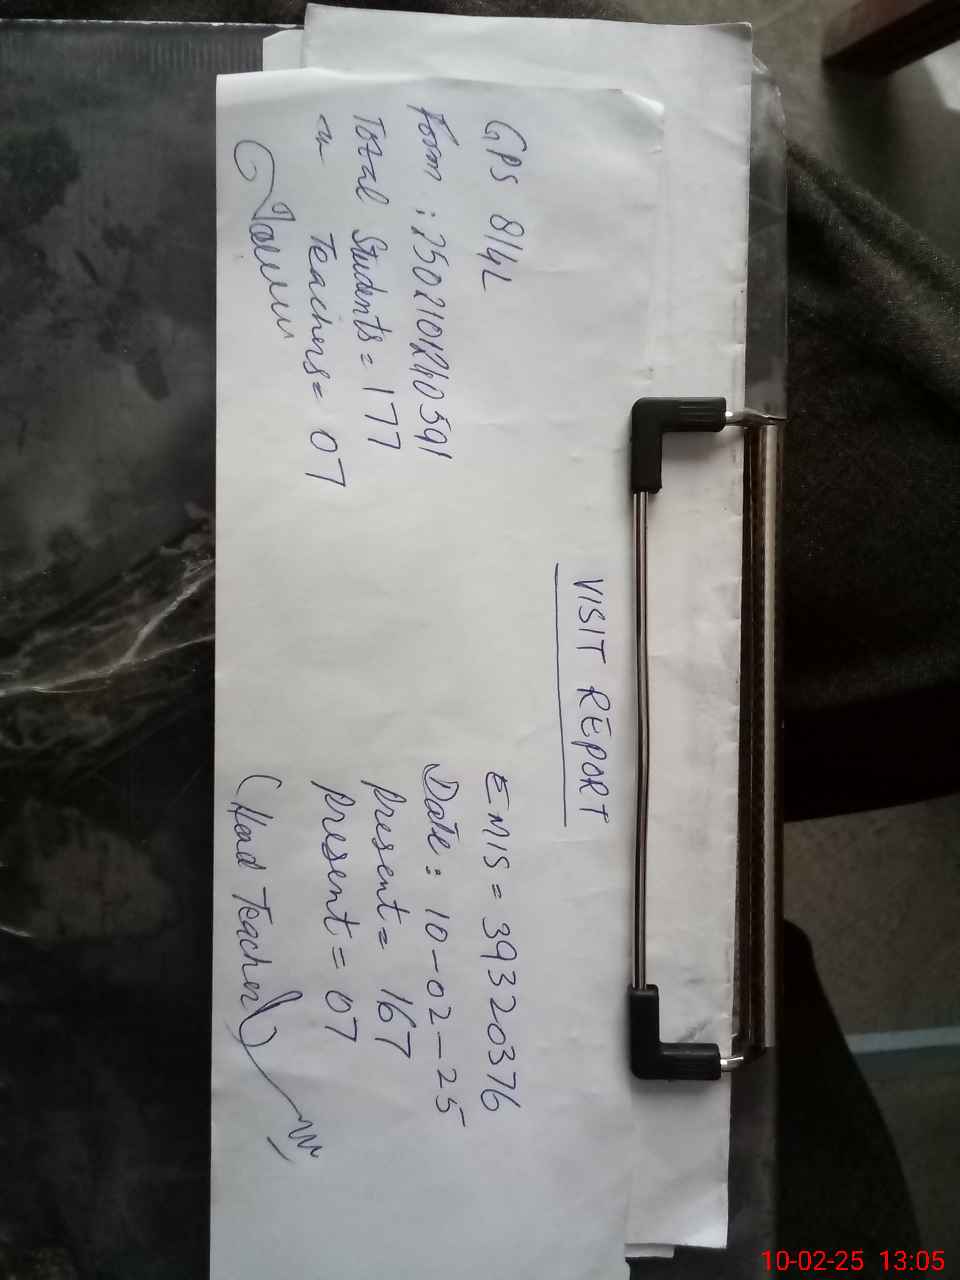 VISIT REPORT
GPS 8/4L EMIS = 39320376
Form : Date : 10-02-25
Total Students = 177 Present = 167
" Teachers = 07 Present = 07
(Head Teacher)
10-02-25 13:05